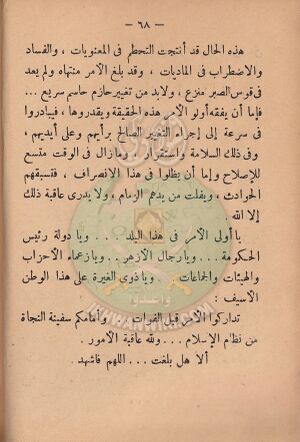 — ٦٨ —
هذه الحال قد أنتجت التحطم فى المعنويات ، والفساد
والاضطراب فى الماديات ، وقد بلغ الأمر منتهاه ولم يعد
فى قوس الصبر منزع ، ولابد من تغيير حازم حاسم سريع ...
فإما أن يفقه أولو الأمر هذه الحقيقة ويقدروها ، فيبادروا
فى سرعة إلى إجراء التغيير الصالح برأيهم وعلى أيديهم ،
وفى ذلك السلامة واستقرار ، ومازال فى الوقت متسع
للإصلاح وإما أن يظلوا فى هذا الانصراف ، فتسبقهم
الحوادث ، ويفلت من يدهم الزمام ، ولا يدرى عاقبة ذلك
إلا الله .
يا أولى الأمر فى هذا البلد ... ويا دولة رئيس
الحكومة ... ويا رجال الأزهر ... ويا زعماء الأحزاب
والهيئات والجماعات ... ويا ذوى الغيرة على هذا الوطن
الأسيف :
تداركوا الأمر قبل الفوات ... وأمامكم سفينة النجاة
من نظام الإسلام ... ولله عاقبة الأمور .
ألا هل بلغت ... اللهم فاشهد .
وأعدوا
IKHWANWIKI.COM